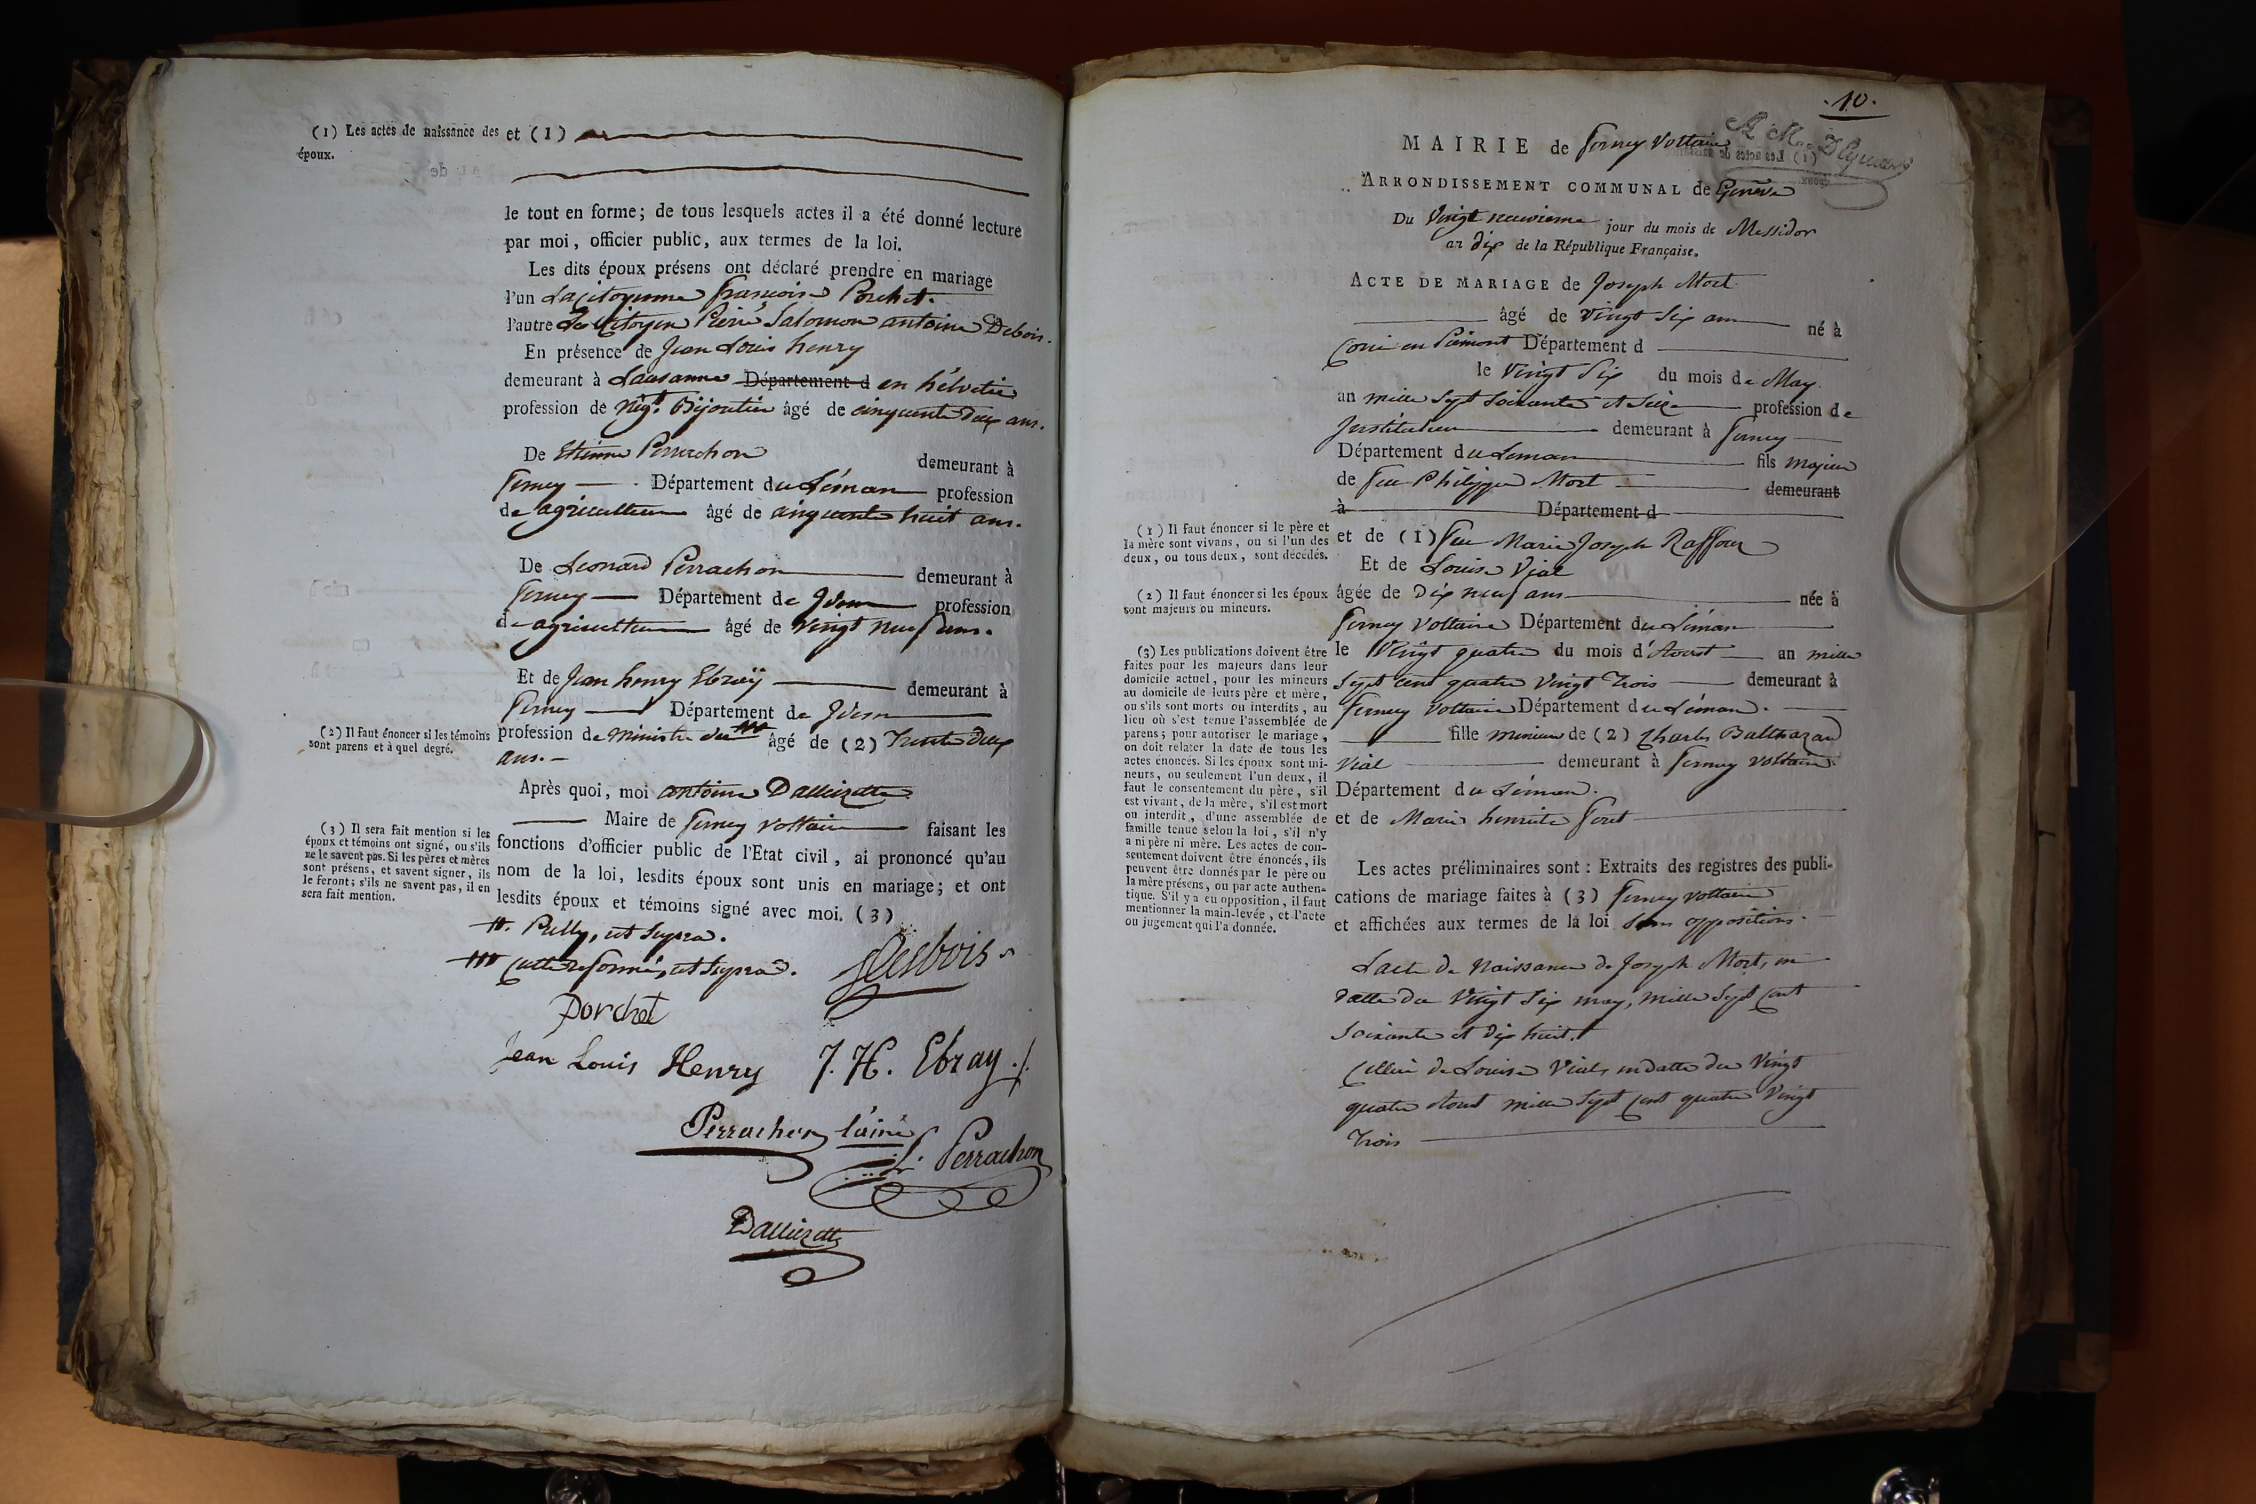 (1) Les actes de naissance des
époux.
et (1)
le tout en forme; de tous lesquels actes il a été donné lecture
par moi, officier public, aux termes de la loi.
Les dits époux présens ont déclaré prendre en mariage
l'un La citoyenne françoise Porchet.
l'autre Le Citoyen Pierre Salomon antoine Debois.
En présence de Jean Louis henry
demeurant à Lausanne Département d en hélvetie
profession de Négt. Bijoutier âgé de cinquante Deux ans.
De Etienne Perrachon demeurant à
ferney Département du Léman profession
de agriculteur âgé de cinquante huit ans.
De Leonard Perrachon demeurant à
ferney Département de Idem profession
de agriculteur âgé de vingt neuf ans.
Et de Jean henry Ebraÿ demeurant à
ferney Département de Idem
(2) Il faut énoncer si les témoins
sont parens et à quel degré.
profession de ministre du âgé de (2) Trente Deux
ans.
Après quoi, moi antoine Dallizette
Maire de ferney voltaire faisant les
fonctions d'officier public de l'Etat civil, ai prononcé qu'au
nom de la loi, lesdits époux sont unis en mariage; et ont
lesdits époux et témoins signé avec moi. (3)
(3) Il sera fait mention si les
époux et témoins ont signé, ou s'ils
ne le savent pas. Si les pères et mères
sont présens, et savent signer, ils
le feront; s'ils ne savent pas, il en
sera fait mention.
Pully, ut supra.
culte reformé, ut supra.
Desbois
Porchet
Jean Louis Henry J. H. Ebray
Perrachon l'ainé
L. Perrachon
Dallizette
10.
MAIRIE de ferney voltaire
ARRONDISSEMENT COMMUNAL de Genève
Du vingt neuvieme jour du mois de Messidor
an dix de la République Française.
ACTE DE MARIAGE de Joseph Mort
âgé de vingt six ans né à
Coni en Piémont Département d
le vingt six du mois de May
an mille sept soixante et seize profession de
Instituteur demeurant à ferney
Département du Leman fils majeur
de feu Philippe Mort demeurant
à Département d
et de (1) feu Marie Joseph Raffour
Et de Louise Vial
âgée de Dix neuf ans née à
ferney voltaire Département du Léman
le Vingt quatre du mois d'Aoust an mille
sept cent quatre vingt trois demeurant à
ferney voltaire Département du Léman.
fille mineure de (2) Charles Balthazar
Vial demeurant à ferney voltaire
Département du Léman.
et de Marie henriette foret
(1) Il faut énoncer si le père et
la mère sont vivans, ou si l'un des
deux, ou tous deux, sont décédés.
(2) Il faut énoncer si les époux
sont majeurs ou mineurs.
(3) Les publications doivent être
faites pour les majeurs dans leur
domicile actuel, pour les mineurs
au domicile de leurs père et mère,
ou s'ils sont morts ou interdits, au
lieu où s'est tenue l'assemblée de
parens; pour autoriser le mariage,
on doit relater la date de tous les
actes énoncés. Si les époux sont mi-
neurs, ou seulement l'un deux, il
faut le consentement du père, s'il
est vivant, de la mère, s'il est mort
ou interdit, d'une assemblée de
famille tenue selon la loi, s'il n'y
a ni père ni mère. Les actes de con-
sentement doivent être énoncés, ils
peuvent être donnés par le père ou
la mère présens, ou par acte authen-
tique. S'il y a eu opposition, il faut
mentionner la main-levée, et l'acte
ou jugement qui l'a donnée.
Les actes préliminaires sont : Extraits des registres des publi-
cations de mariage faites à (3) ferney voltaire
et affichées aux termes de la loi sans oppositions.
L'acte de Naissance de Joseph Mort, en
datte du vingt six may, mille sept cent
soixante et dix huit.
Celui de Louise Vial, en datte du vingt
quatre Aout mille sept cent quatre vingt
trois